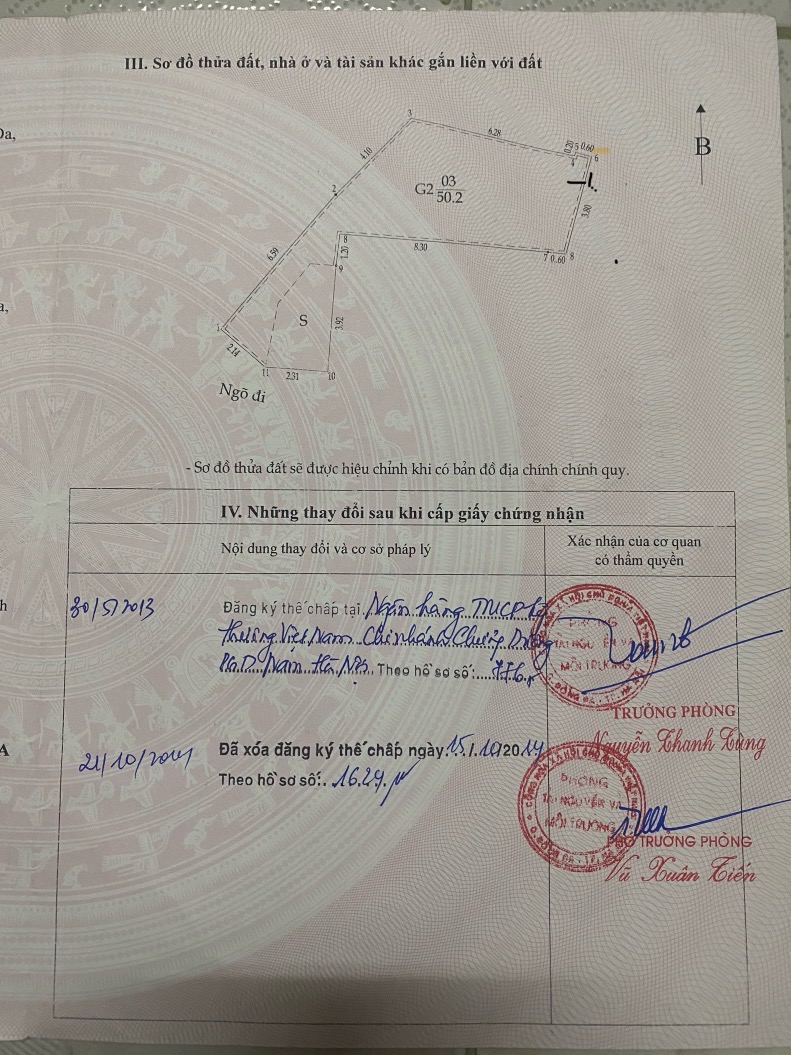 III. Sơ đồ thửa đất, nhà ở và tài sản khác gắn liền với đất
Đa,
a,
h
A
B
3
6.28
0.20
5 0.60
6
4
4.10
2
G2 03
50.2
3.80
8
8.30
7 0.60 8
1.20
9
6.59
S
3.92
1
2.14
11
2.31
10
Ngõ đi
- Sơ đồ thửa đất sẽ được hiệu chỉnh khi có bản đồ địa chính chính quy.
IV. Những thay đổi sau khi cấp giấy chứng nhận
Nội dung thay đổi và cơ sở pháp lý
Xác nhận của cơ quan
có thẩm quyền
30/5/2013
Đăng ký thế chấp tại Ngân hàng TMCP
thương Việt Nam Chi nhánh Chương Dương
PGD Nam Hà Nội Theo hồ sơ số:
PHÒNG
TÀI NGUYÊN VÀ
MÔI TRƯỜNG
TRƯỞNG PHÒNG
Nguyễn Thanh Tùng
21/10/2014
Đã xóa đăng ký thế chấp ngày 15/10/2014
Theo hồ sơ số: 1629
PHÒNG
TÀI NGUYÊN VÀ
MÔI TRƯỜNG
PHÓ TRƯỞNG PHÒNG
Vũ Xuân Tiến